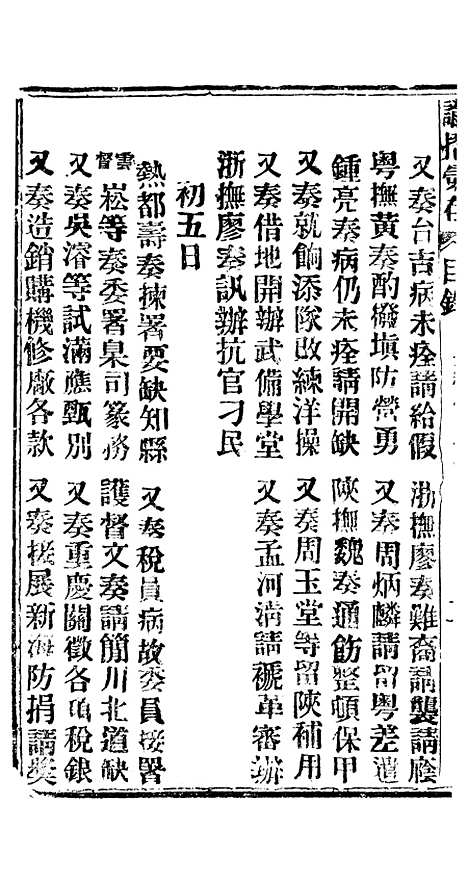 諭摺彙存 目錄
又奏台吉病未痊請給假 浙撫廖奏難裔請襲請廕
粵撫黃奏酌撥塡防營勇 又奏周炳麟請留粵差遣
鍾亮奏病仍未痊請開缺 陝撫魏奏通飭整頓保甲
又奏就餉添隊改練洋操 又奏周玉堂等留陝補用
又奏借地開辦武備學堂 又奏孟河淸請褫革審辦
浙撫廖奏訊辦抗官刁民
初五日
熱都壽奏揀署要缺知縣 又奏稅員病故委員接署
雲督崧等奏委署臬司篆務 護督文奏請簡川北道缺
又奏吳濬等試滿應甄別 又奏重慶關徵各項稅銀
又奏造銷購機修廠各款 又奏接展新海防捐請奬